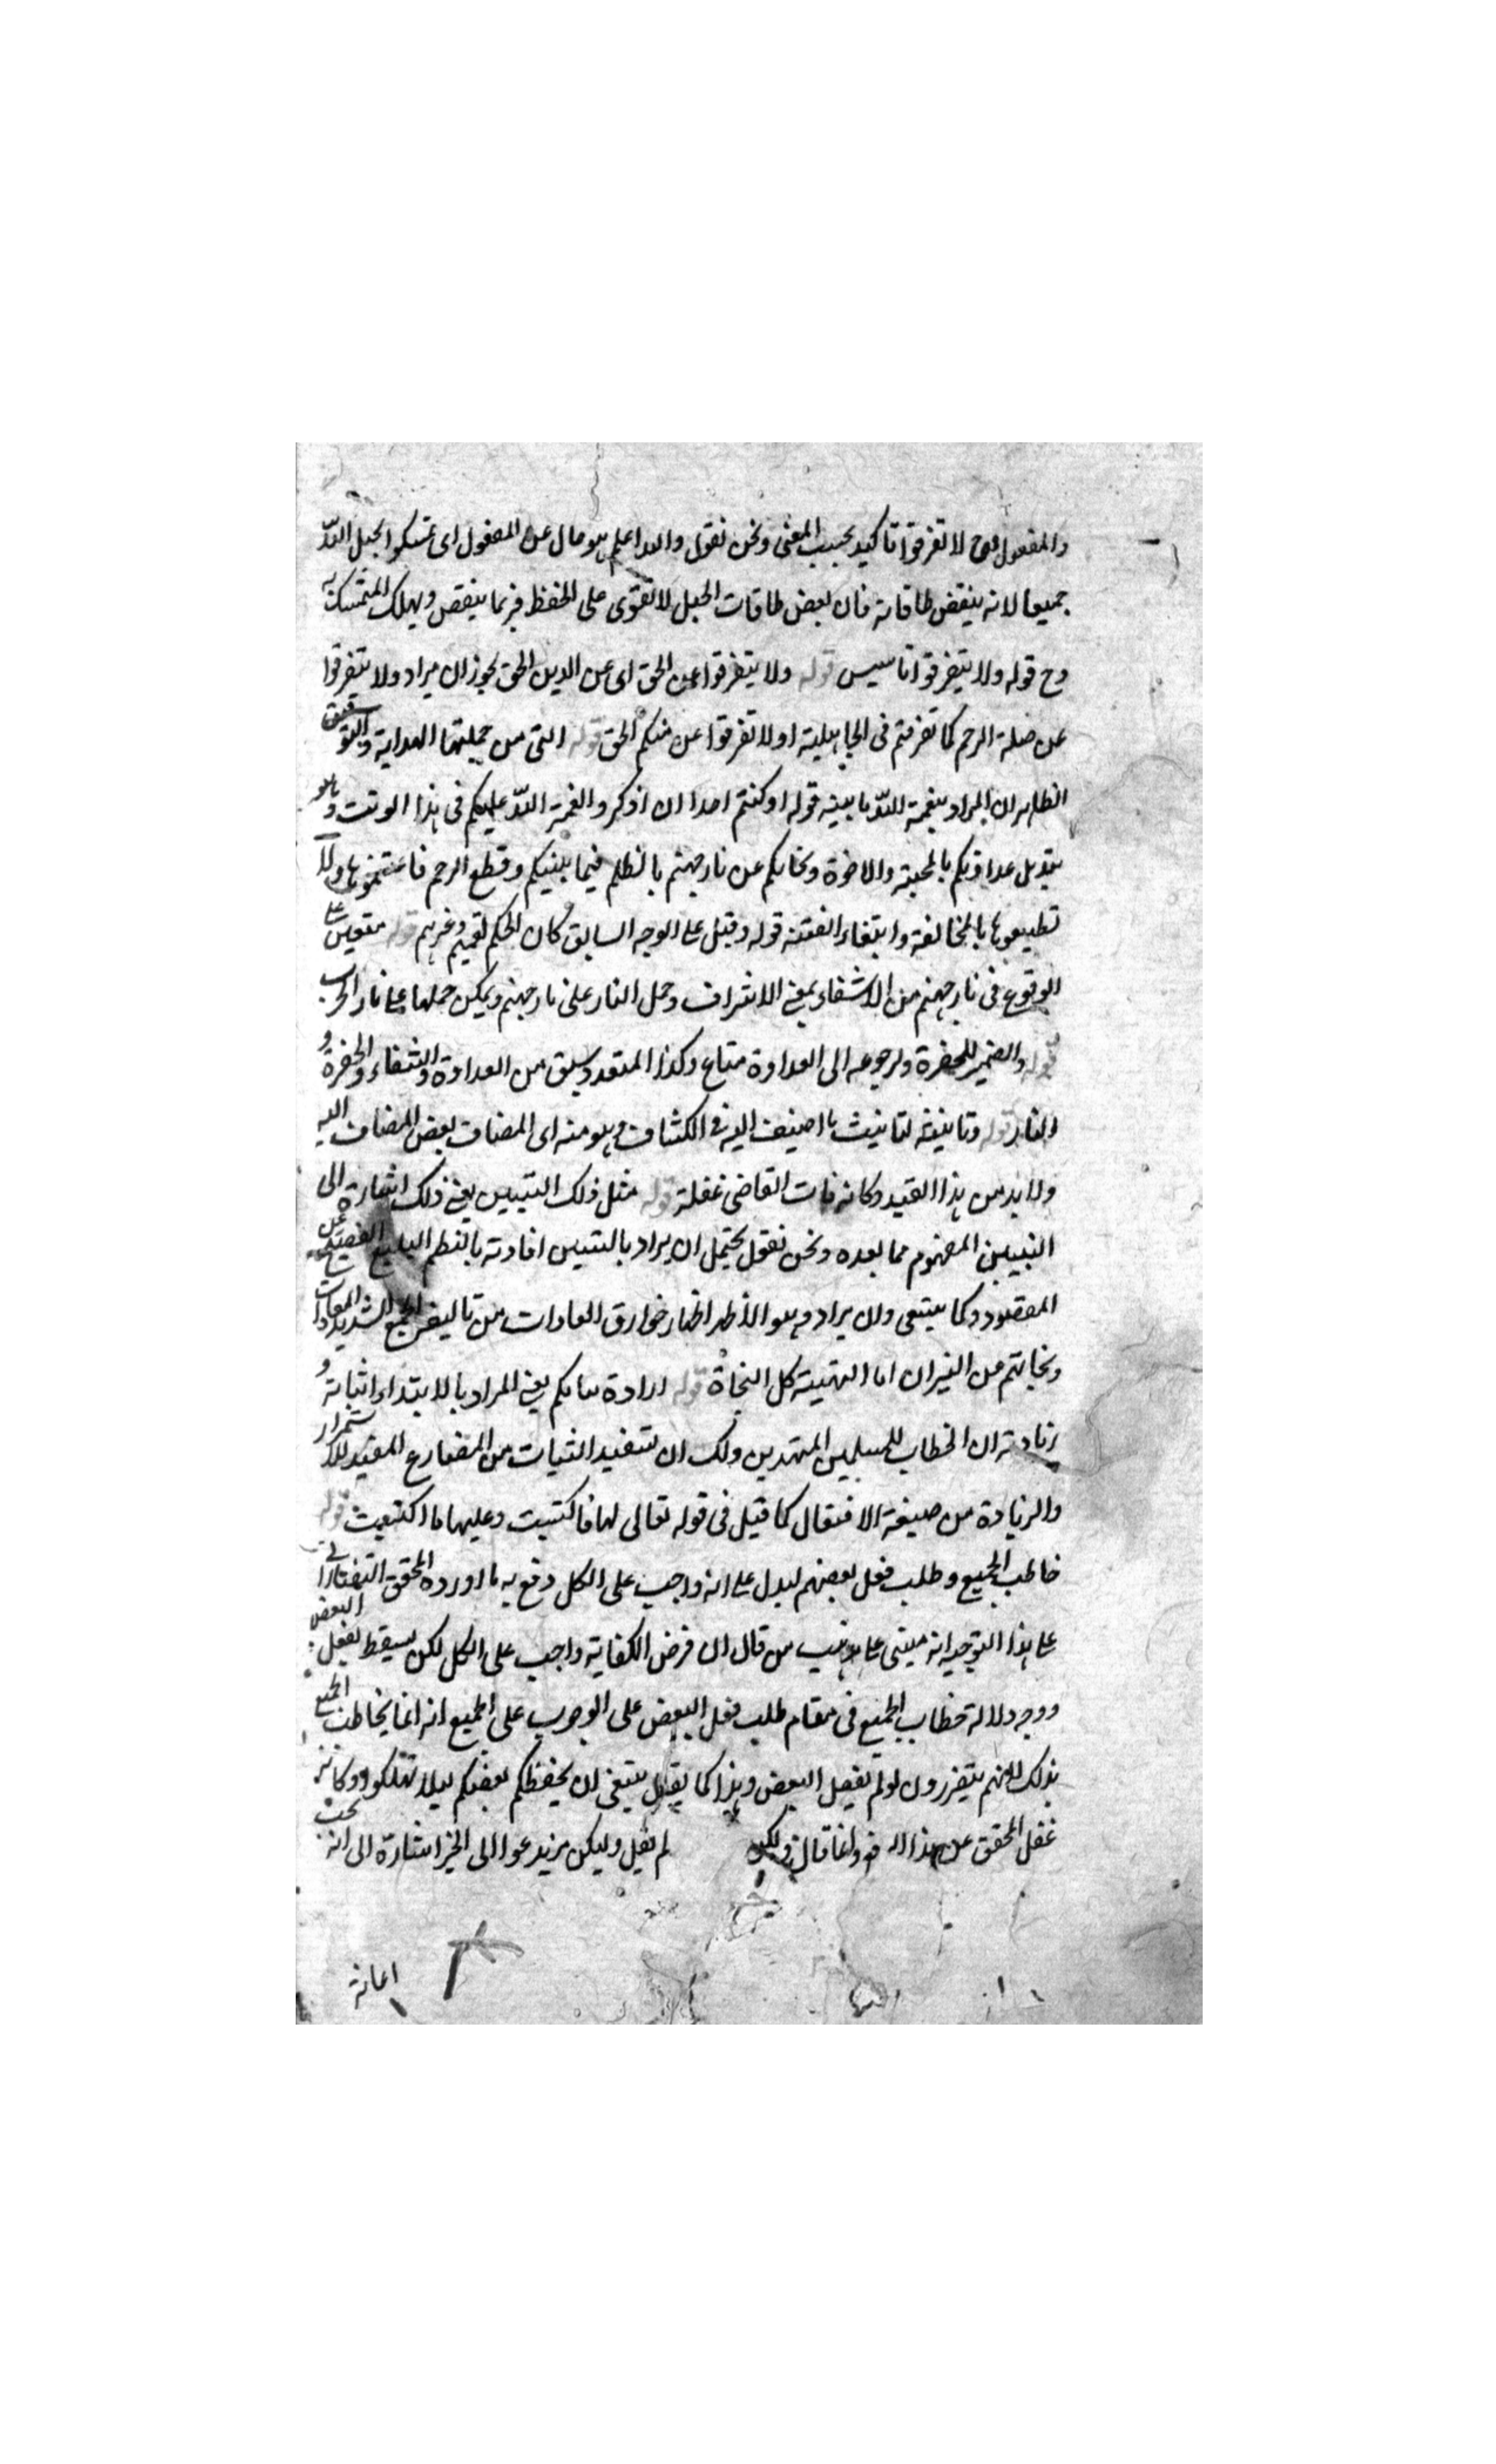 والمفعول فح لا تفرقوا تاكيد بحسب المعنى ونحن نقول والله اعلم هو حال عن المفعول اى تمسكوا بحبل الله
جميعا لانه ينقض طاقاته فان بعض طاقات الحبل لا تقوى على الحفظ فربما ينقص ويهلك المتمسك به
وح قوله ولا يتفرقوا تاسيس قوله ولا يتفرقوا عن الحق اى عن الدين الحق يجوز ان يراد ولا يتفرقوا
عن صلة الرحم كما تفرقتم فى الجاهلية او لا تفرقوا عن منكم الحق قوله التى من جملتها الهداية والتوفيق
الظاهر ان المراد بنعمة الله ما بينه قوله اذ كنتم اعدا اى اذكروا نعمة الله عليكم فى هذا الوقت وهو
تبديل عداوتكم بالمحبة والاخوة ونجاتكم عن نار جهنم بالظلم فيما بينكم وقطع الرحم فاغتنموها ولا
تضيعوها بالمخالفة وابتغاء الفتنة قوله وقيل على الوجه السابق كان الحكم لقيهم وغيرهم قوله
الوقوع فى نار جهنم من الاشفاء بمعنى الاشراف وحمل النار على نار جهنم ويمكن حملها على نار الحرب
قوله والضمير للحفرة ورجوعه الى العداوة متاع وكذا من العداوة والشفاء والحفرة و
النار قوله وتانيثه لتانيث ما اضيف اليه فى الكشاف وهو منه اى المضاف بعض المضاف اليه
ولا بد من هذا القيد وكانه فات القاضى غفلة قوله مثل ذلك التبيين يعنى ذلك اشارة الى
التبيين المفهوم مما بعده ونحن نقول يحتمل ان يراد بالتبيين افادته بالنظم البليغ الفصيح عن
المقصود وكما ينبغى وان يراد وهو الاظهر اظهار خوارق العادات من تاليف الجمع الشديد المعادات
ونجاتهم من النيران اما التهيئة كل النجاة قوله ارادة ثباتكم يعنى المراد بالابتداء اثباته و
زيادته ان الخطاب للمسلمين المهتدين ولك ان تستفيد الثبات من المضارع المفيد للاستمرار
والزيادة من صيغة الافتعال كما قيل فى قوله تعالى لها ما كسبت وعليها ما اكتسبت قوله
خاطب الجميع وطلب فعل بعضهم ليدل على انه واجب على الكل دفع به ما اورده المحقق التفتازانى
على هذا التوجيه انه مبنى على مذهب من قال ان فرض الكفاية واجب على الكل لكن يسقط بفعل البعض
ووجه دلالة خطاب الجميع فى مقام طلب فعل البعض على الوجوب على الجميع انه انما يخاطب الجميع
بذلك لانهم يتضررون لو لم يفعل البعض وهذا كما يقال ينبغى ان يحفظكم بعضكم ليلا تهلكوا وكانه
غفل المحقق عن هذا وانما قال لم يقل وليكن يدعوا الى الخير اشارة الى انه يجب
اعانة